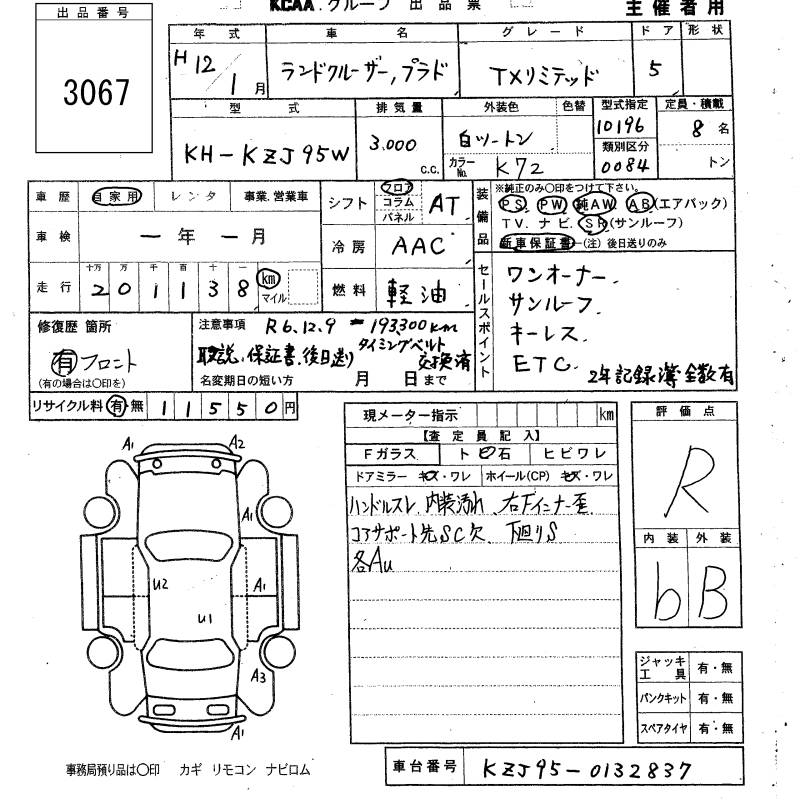 KCAA. グループ 出品票
主催者用
出品番号
3067
年式 車名 グレード ドア 形状
H12/1月 ランドクルーザー,プラド TXリミテッド 5
型式 排気量 外装色 色替 型式指定 定員・積載
KH-KZJ95W 3.000 c.c. 白ツートン 10196 8名
カラーNo. K72 類別区分 0084 トン
車歴 自家用 レンタ 事業.営業車
シフト フロア コラム パネル AT
装備品 ※純正のみ〇印をつけて下さい。
PS PW 純AW AB(エアバッグ)
TV. ナビ. SR(サンルーフ)
新車保証書―(注)後日送りのみ
車検 ー年ー月
冷房 AAC
走行 十万 万 千 百 十 一
201138 km マイル
燃料 軽油
セールスポイント ワンオーナー.
サンルーフ.
キーレス.
ETC.
2年記録簿全数有
修復歴 箇所
有 フロント
(有の場合は〇印を)
注意事項 R6.12.9 193,300km
タイミングベルト
取説.保証書.後日送り 交換済
名変期日の短い方 月 日まで
リサイクル料 有 無 11550円
現メーター指示 km
【査定員記入】
Fガラス ト石 ヒビワレ
ドアミラー キズ・ワレ ホイール(CP) キズ・ワレ
ハンドルスレ、内装汚れ、右Fインナー歪
コアサポート先SC欠、下廻りS
各AU
評価点
R
内装 外装
b B
A1 A2
A1
U2 A1
U1
A3
A1
ジャッキ工具 有・無
パンクキット 有・無
スペアタイヤ 有・無
事務局預り品は〇印 カギ リモコン ナビロム
車台番号 KZJ95-0132837